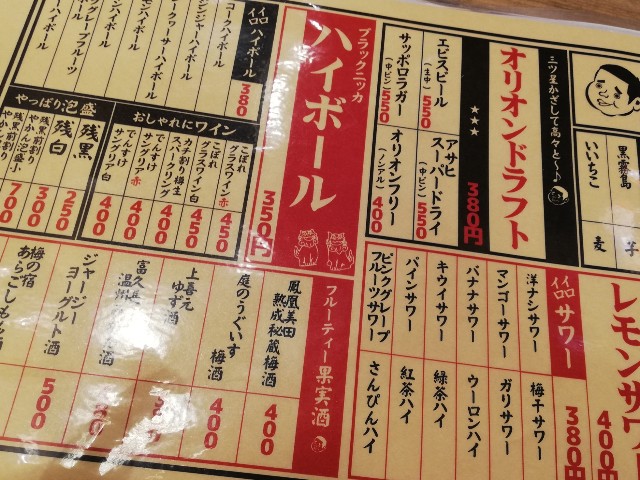 黒霧島
いいちこ
芋
麦
三ツ星かざして高々と～♪
オリオンドラフト
★★★
380円
エビスビール
(生中)
550
サッポロラガー
(中ビン)
550
アサヒ
スーパードライ
(中ビン)
550
オリオンフリー
(ノンアル)
400
ブラックニッカ
ハイボール
350円
ハイボール
380
コークハイボール
ジンジャーハイボール
おしゃれにワイン
こぼれ
グラスワイン 赤
450
こぼれ
グラスワイン 白
450
カチ割り樽生
スパークリング
450
でんすけ
サングリア 赤
400
でんすけ
サングリア 白
400
やっぱり泡盛
残黒
残白
250
300
700
レモンサワー
400
サワー
380円
洋ナシサワー
マンゴーサワー
バナナサワー
キウイサワー
パインサワー
ピンクグレープ
フルーツサワー
梅干サワー
ガリサワー
ウーロンハイ
緑茶ハイ
紅茶ハイ
さんぴんハイ
フルーティー果実酒
鳳凰美田
熟成秘蔵梅酒
400
庭のうぐいす
梅酒
400
上喜元
ゆず酒
ジャージー
ヨーグルト酒
梅の宿
あらごしもも酒
500
400